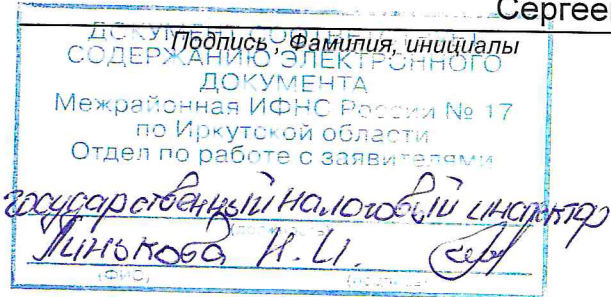 Сергее
Подпись, Фамилия, инициалы
ДОКУМЕНТ СООТВЕТ
СОДЕРЖАНИЮ ЭЛЕКТРОННОГО
ДОКУМЕНТА
Межрайонная ИФНС России № 17
по Иркутской области
Отдел по работе с заявителями
государственный налоговый инспектор
(должность)
Линькова И.И.
(ФИО)
(подпись)